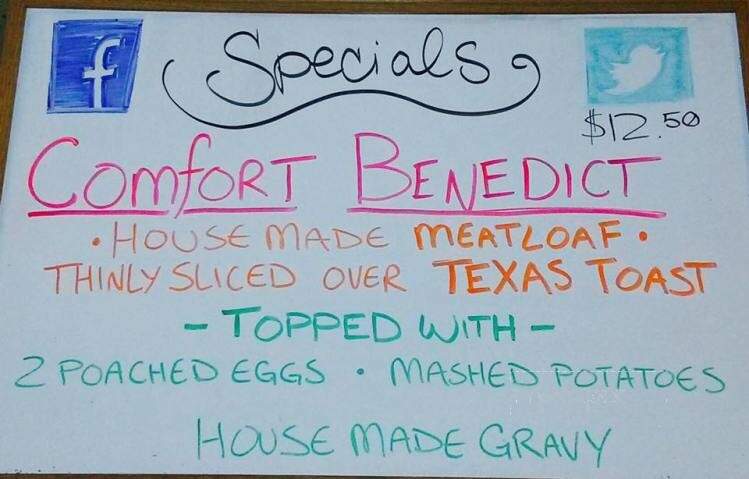 f
Specials
$12.50
COMfORT BENEDICT
• HOUSE MADE MEATLOAF •
THINLY SLICED OVER TEXAS TOAST
- TOPPED WITH -
2 POACHED EGGS • MASHED POTATOES
HOUSE MADE GRAVY